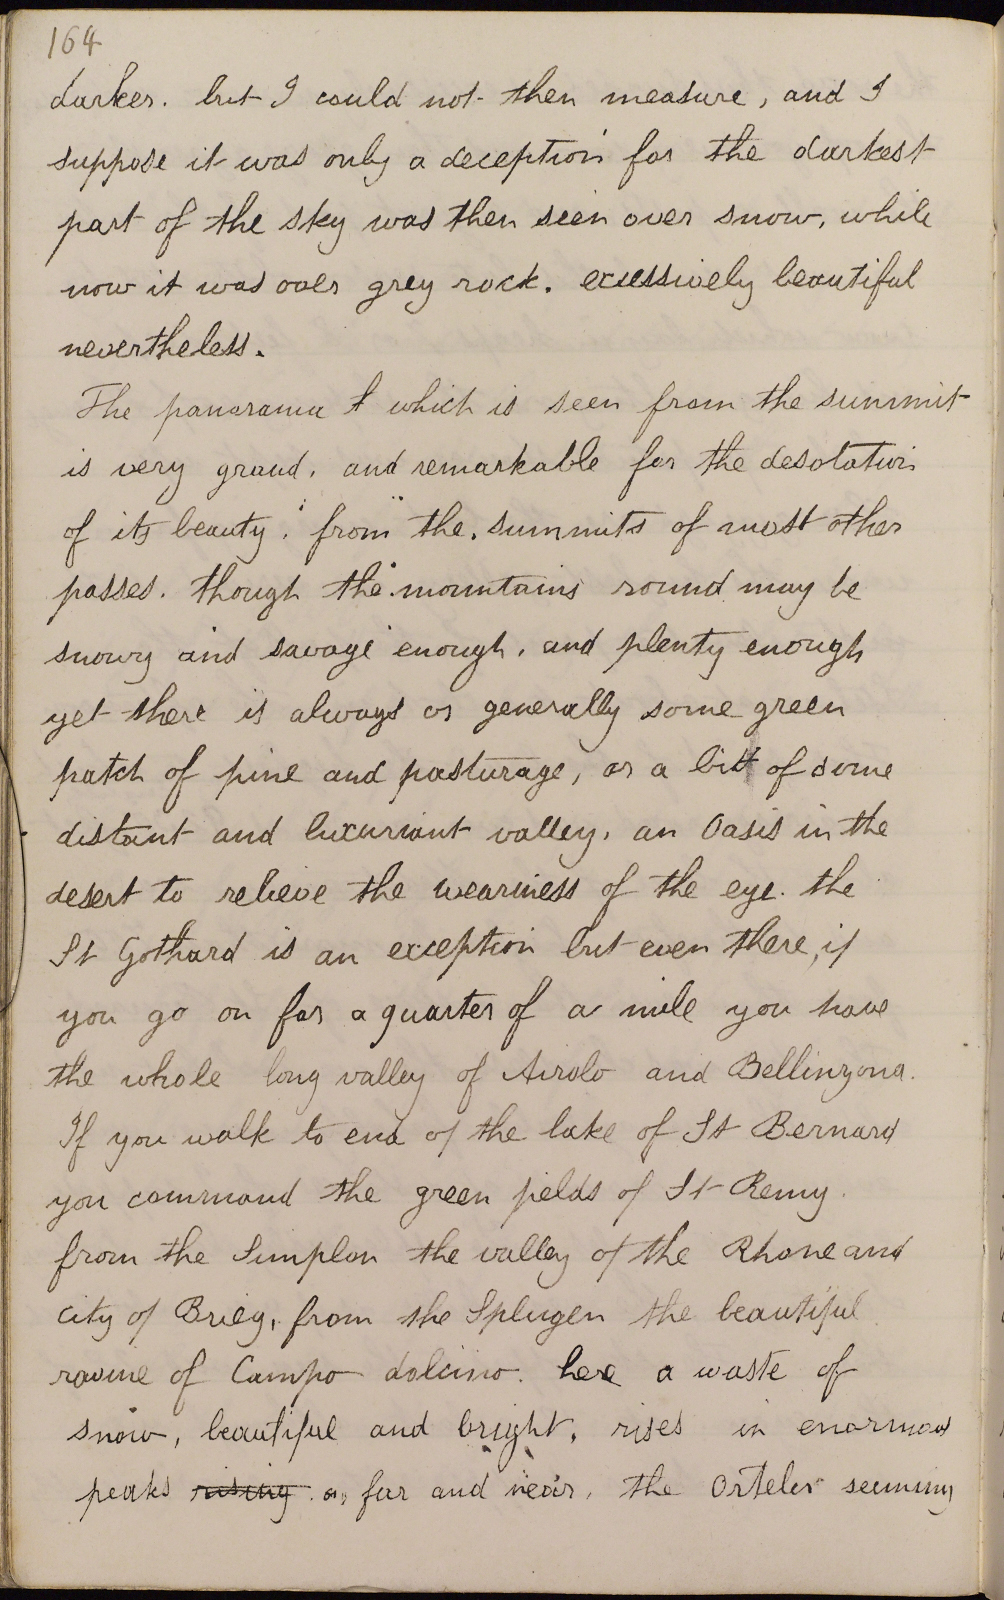 164
darker. but I could not then measure, and I
suppose it was only a deception for the darkest
part of the sky was then seen over snow, while
now it was over grey rock. excessively beautiful
nevertheless.
The panorama which is seen from the summit
is very grand. and remarkable for the desolation
of its beauty. from the summits of most other
passes. though the mountains round may be
snowy and savage enough. and plenty enough
yet there is always or generally some green
patch of pine and pasturage, or a bit of some
distant and luxuriant valley. an Oasis in the
desert to relieve the weariness of the eye. the
St Gothard is an exception but even there, if
you go on for a quarter of a mile you have
the whole long valley of Airolo and Bellinzona.
If you walk to end of the lake of St Bernard
you command the green fields of St Remy.
from the Simplon the valley of the Rhone and
city of Brieg, from the Splugen the beautiful
ravine of Campo dolcino. here a waste of
snow, beautiful and bright, rises in enormous
peaks rising far and near. the Orteler seeming